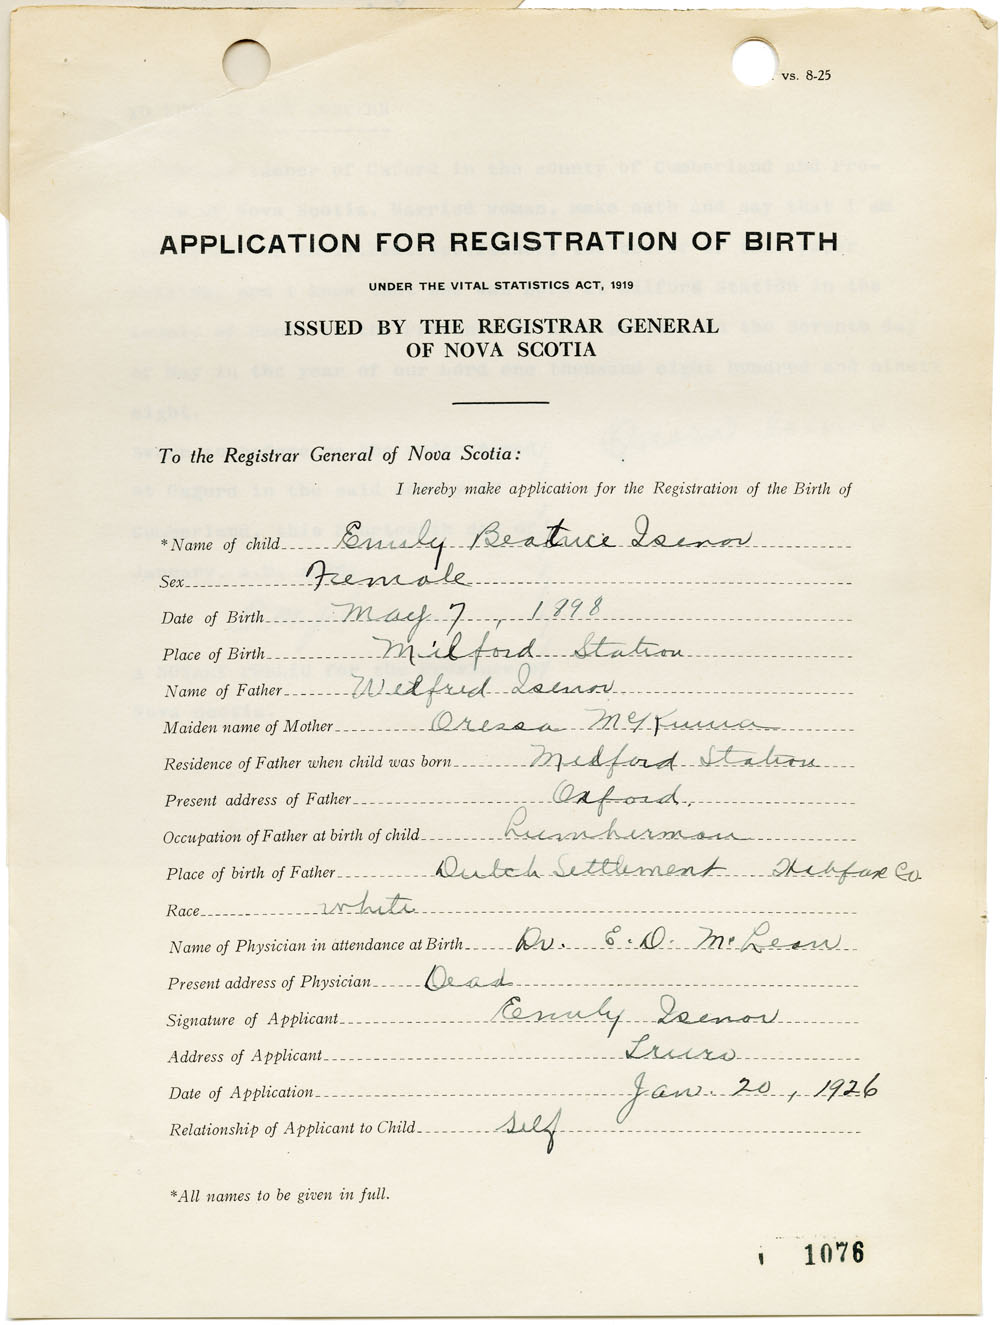 vs. 8-25
APPLICATION FOR REGISTRATION OF BIRTH
UNDER THE VITAL STATISTICS ACT, 1919
ISSUED BY THE REGISTRAR GENERAL
OF NOVA SCOTIA
To the Registrar General of Nova Scotia:
I hereby make application for the Registration of the Birth of
*Name of child Emily Beatrice Isenor
Sex Female
Date of Birth May 7, 1898
Place of Birth Milford Station
Name of Father Wilfred Isenor
Maiden name of Mother Oressa
Residence of Father when child was born Milford Station
Present address of Father Oxford.
Occupation of Father at birth of child Lumberman
Place of birth of Father Dutch Settlement Halifax Co.
Race white
Name of Physician in attendance at Birth Dr. E. D. McLean
Present address of Physician Dead
Signature of Applicant Emily Isenor
Address of Applicant Truro
Date of Application Jan. 20, 1926
Relationship of Applicant to Child self
*All names to be given in full.
1076